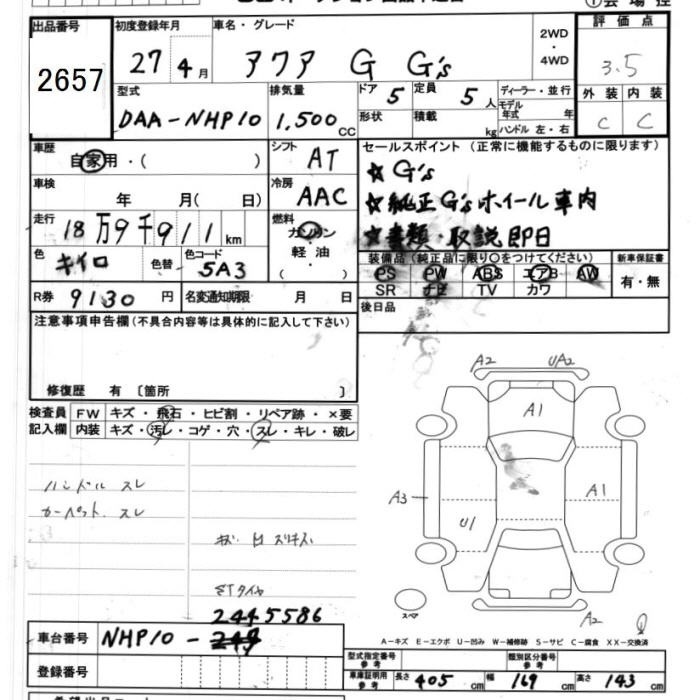 出品番号
2657
初度登録年月
27 4月
車名・グレード
アクア G G's
2WD
・
4WD
評価点
3.5
外装 内装
C C
型式
DAA-NHP10
排気量
1,500cc
ドア 5
定員 5人
形状
積載 kg
ディーラー・並行
モデル年式 年
ハンドル 左・右
車歴
自家用・( )
シフト AT
車検
年 月(日)
冷房 AAC
走行
18万9千911km
燃料
ガソリン
軽油
色 キイロ
色替
色コード 5A3
R券 9130円
名変通知期限 月 日
セールスポイント (正常に機能するものに限ります)
☆ G's
☆純正G'sホイール 車内
☆書類・取説 即日
装備品 (純正品に限り○をつけてください)
新車保証書
PS PW ABS エアB AW
SR ナビ TV カワ
有・無
後日品
注意事項申告欄(不具合内容等は具体的に記入して下さい)
修復歴 有 〔箇所 〕
検査員記入欄
FW キズ・飛石・ヒビ割・リペア跡・×要
内装 キズ・汚レ・コゲ・穴・スレ・キレ・破レ
ハンドル スレ
カーペット スレ
キズ 凹 スリキズ
STタイヤ
2445586
車台番号 NHP10-249
登録番号
A2 UA2
A1
A3
A1
U1
A2
スペア
A-キズ E-エクボ U-凹み W-補修跡 S-サビ C-腐食 XX-交換済
型式指定番号 参考
類別区分番号 参考
車庫証明用 参考 長さ 405 cm 幅 169 cm 高さ 143 cm